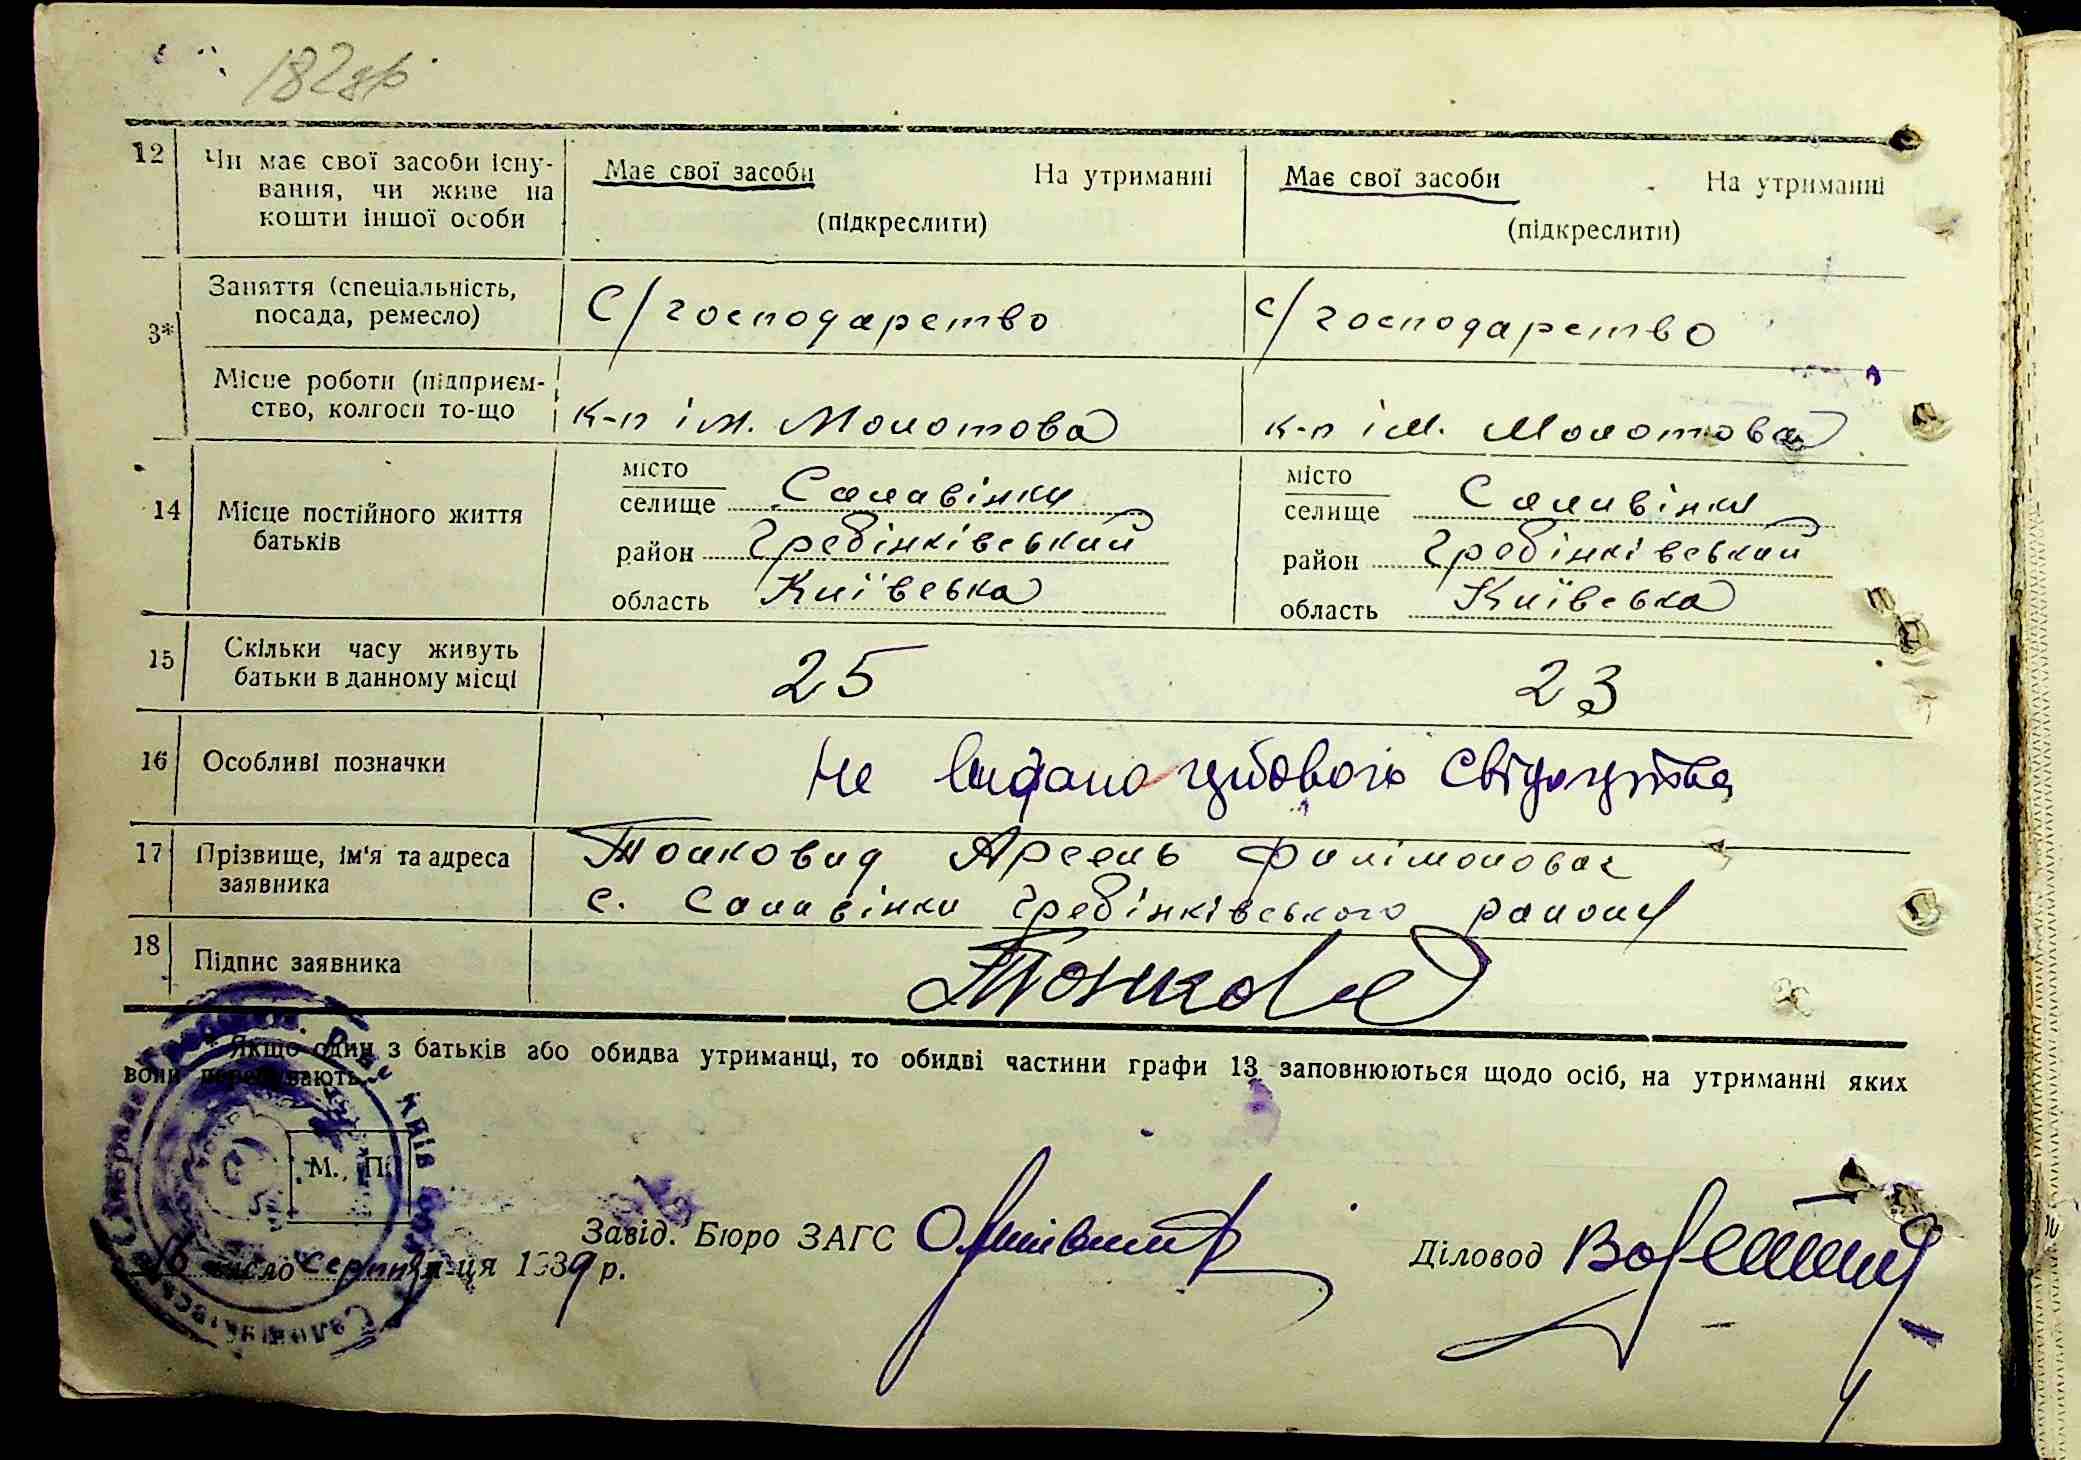 182зв
12 Чи має свої засоби існу- Має свої засоби На утриманні Має свої засоби На утриманні
вання, чи живе на
кошти іншої особи (підкреслити) (підкреслити)
Заняття (спеціальність, С/господарство с/господарство
посада, ремесло)
3*
Місце роботи (підприєм- к-п ім. Молотова к-п ім. Молотова
ство, колгосп то-що
14 Місце постійного життя місто місто
батьків селище Саливінки селище Саливінки
район Гребінківський район Гребінківський
область Київська область Київська
15 Скільки часу живуть 25 23
батьки в данному місці
16 Особливі позначки Не видано цифрового свідоцтва
17 Прізвище, ім'я та адреса Арсень Филімонович
заявника с. Саливінки Гребінківського району
18 Підпис заявника
* Якщо один з батьків або обидва утриманці, то обидві частини графи 13 заповнюються щодо осіб, на утриманні яких
вони перебувають.
М. П.
Завід. Бюро ЗАГС Діловод
число серпня м-ця 1939 р.